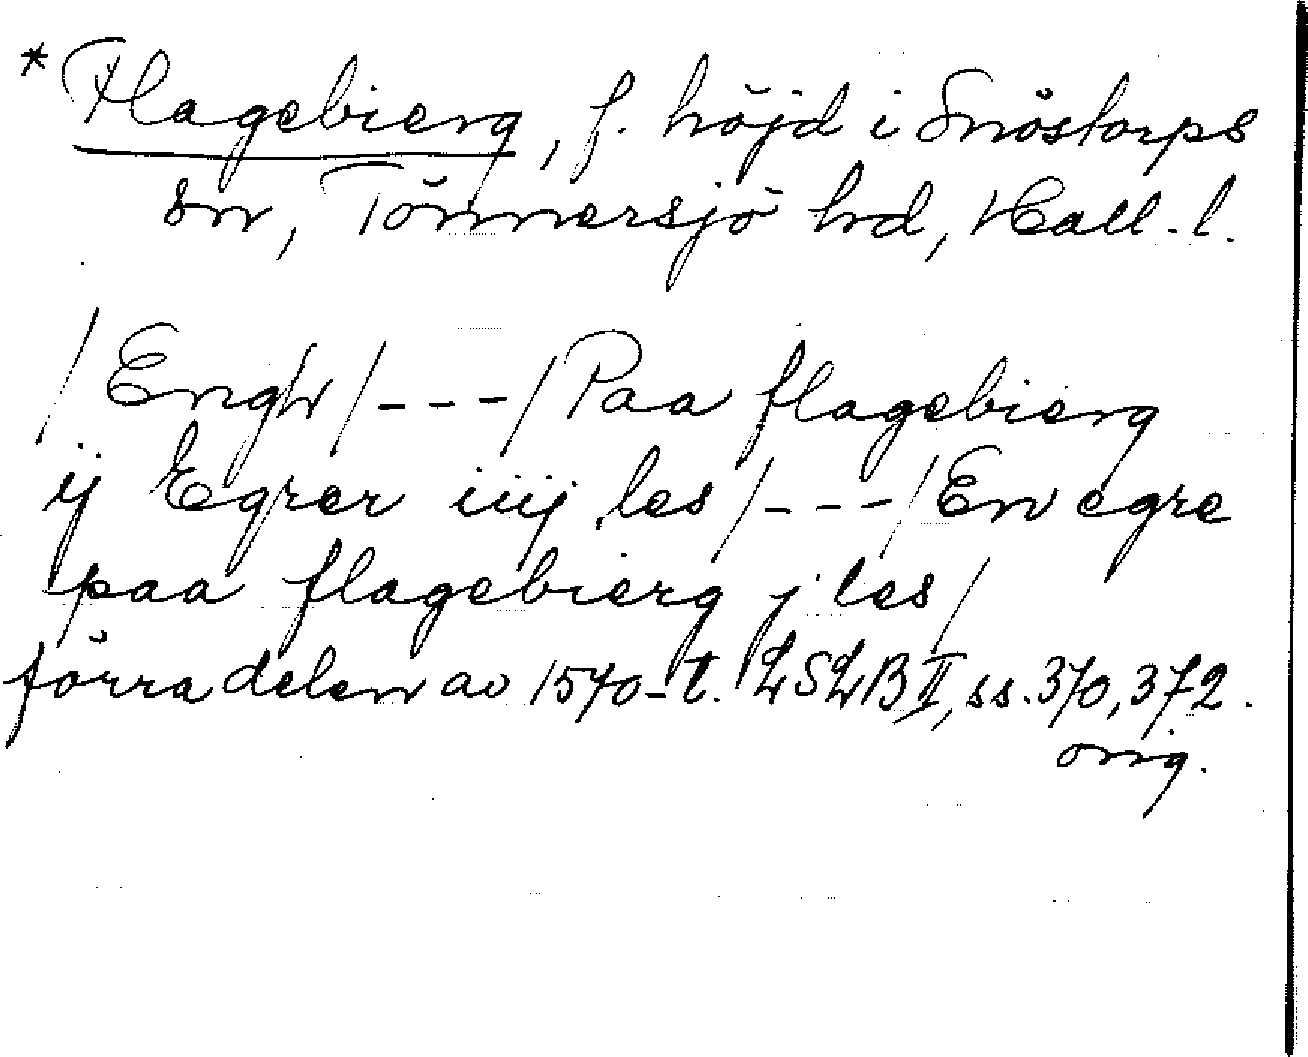 * Flagebierg, f. höjd i Snöstorps
sn, Tönnersjö hd, Hall. l.
/Engh/---/Paa flagebierg
ij Egrer iiij les/---/En egre
paa flagebierg j les/
förra delen av 1570-t. LSLB II, ss. 370, 372.
orig.